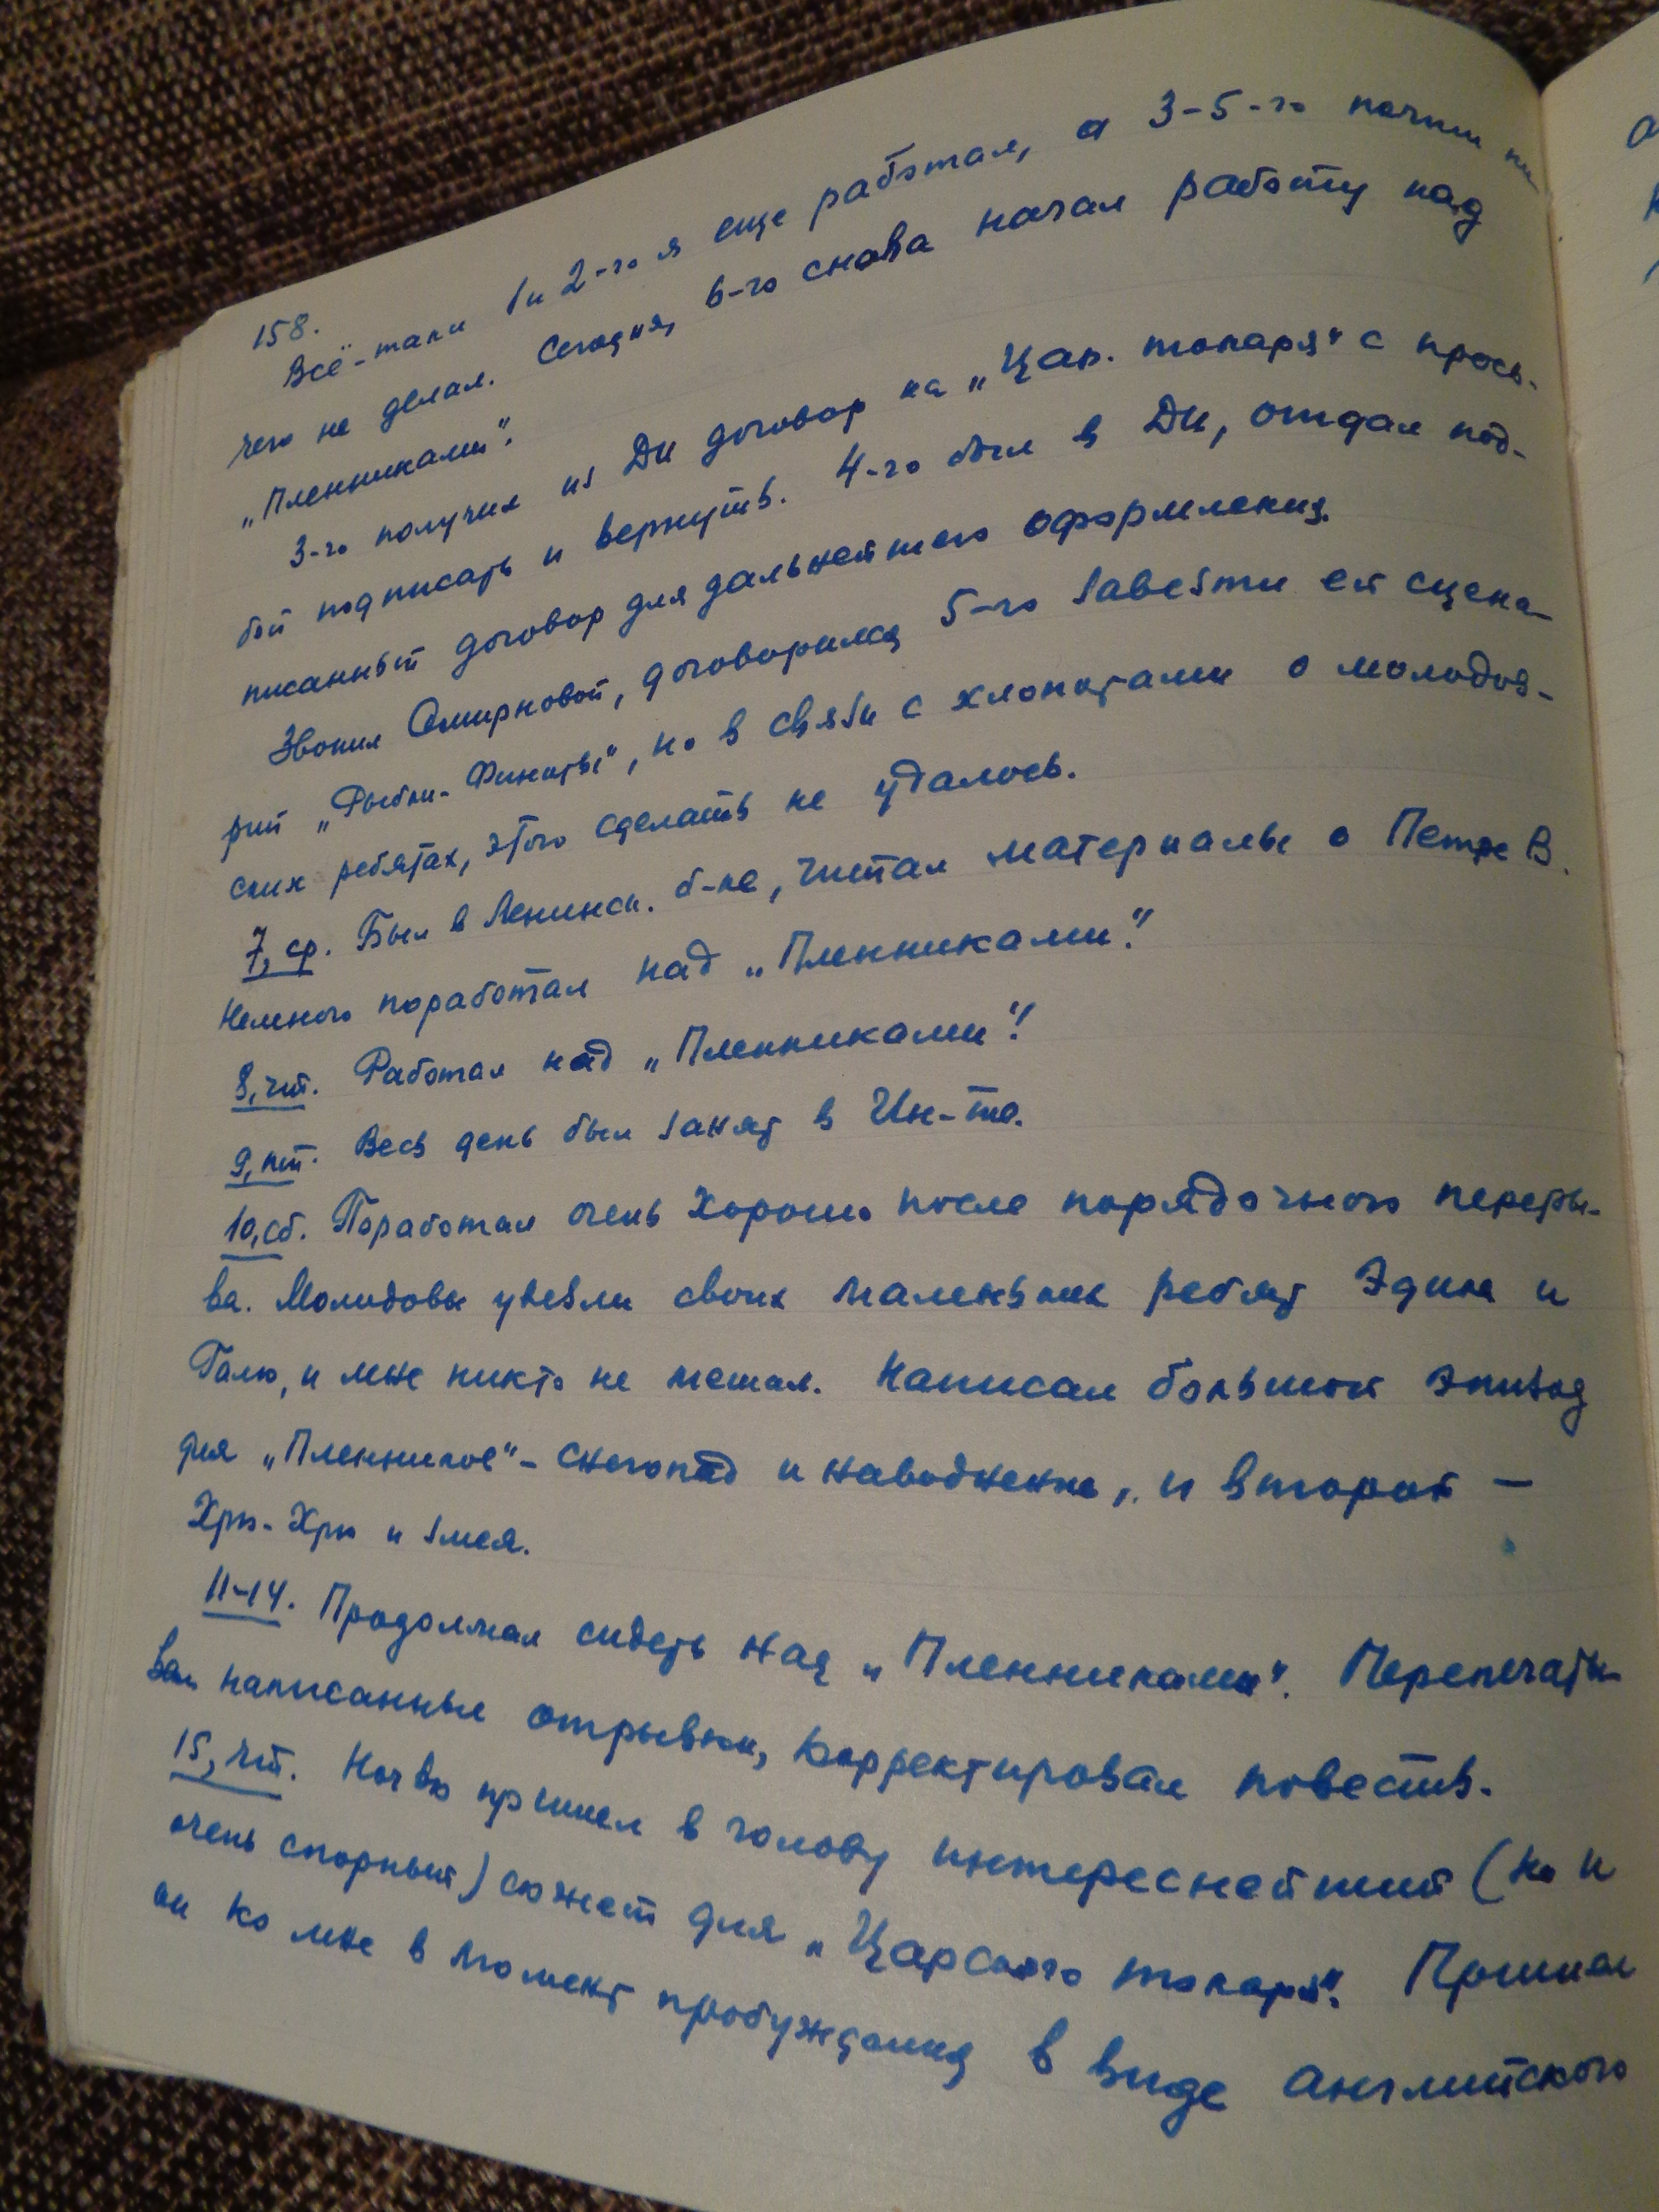 158.
Всё-таки 1 и 2-го я еще работал, а 3-5-го почти ни-
чего не делал. Сегодня, 6-го снова начал работу над
„Пленниками".
3-го получил из ДИ договор на „Цар. токаря" с прось-
бой подписать и вернуть. 4-го был в ДИ, отдал под-
писанный договор для дальнейшего оформления.
Звонил Смирновой, договорился 5-го завезти ей сцена-
рий „Рыбки-Финиты", но в связи с хлопотами о молодов-
ских ребятах, этого сделать не удалось.
7, ср. Был в Ленинск. б-ке, читал материалы о Петре В.
Немного поработал над „Пленниками".
8, чт. Работал над „Пленниками".
9, пт. Весь день был занят в Ин-те.
10, сб. Поработал очень хорошо после порядочного переры-
ва. Молодовы увезли своих маленьких ребят Эдика и
Галю, и мне никто не мешал. Написал большой эпизод
для „Пленников" - снегопад и наводнение, и второй —
Хрю-Хрю и змея.
11-14. Продолжал сидеть над „Пленниками". Перепечаты-
вал написанные отрывки, корректировал повесть.
15, чт. Ночью пришел в голову интереснейший (но и
очень спорный) сюжет для „Царского токаря". Пришел
он ко мне в момент пробуждения в виде английского